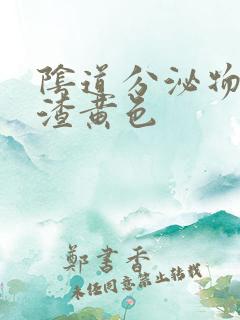 陰道分泌物
渣黄色
鄭書香
未任同意禁止转载